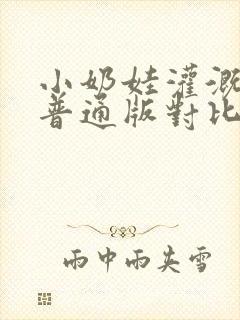 小奶娃灌溉
普通版對比
雨中雨夾雪